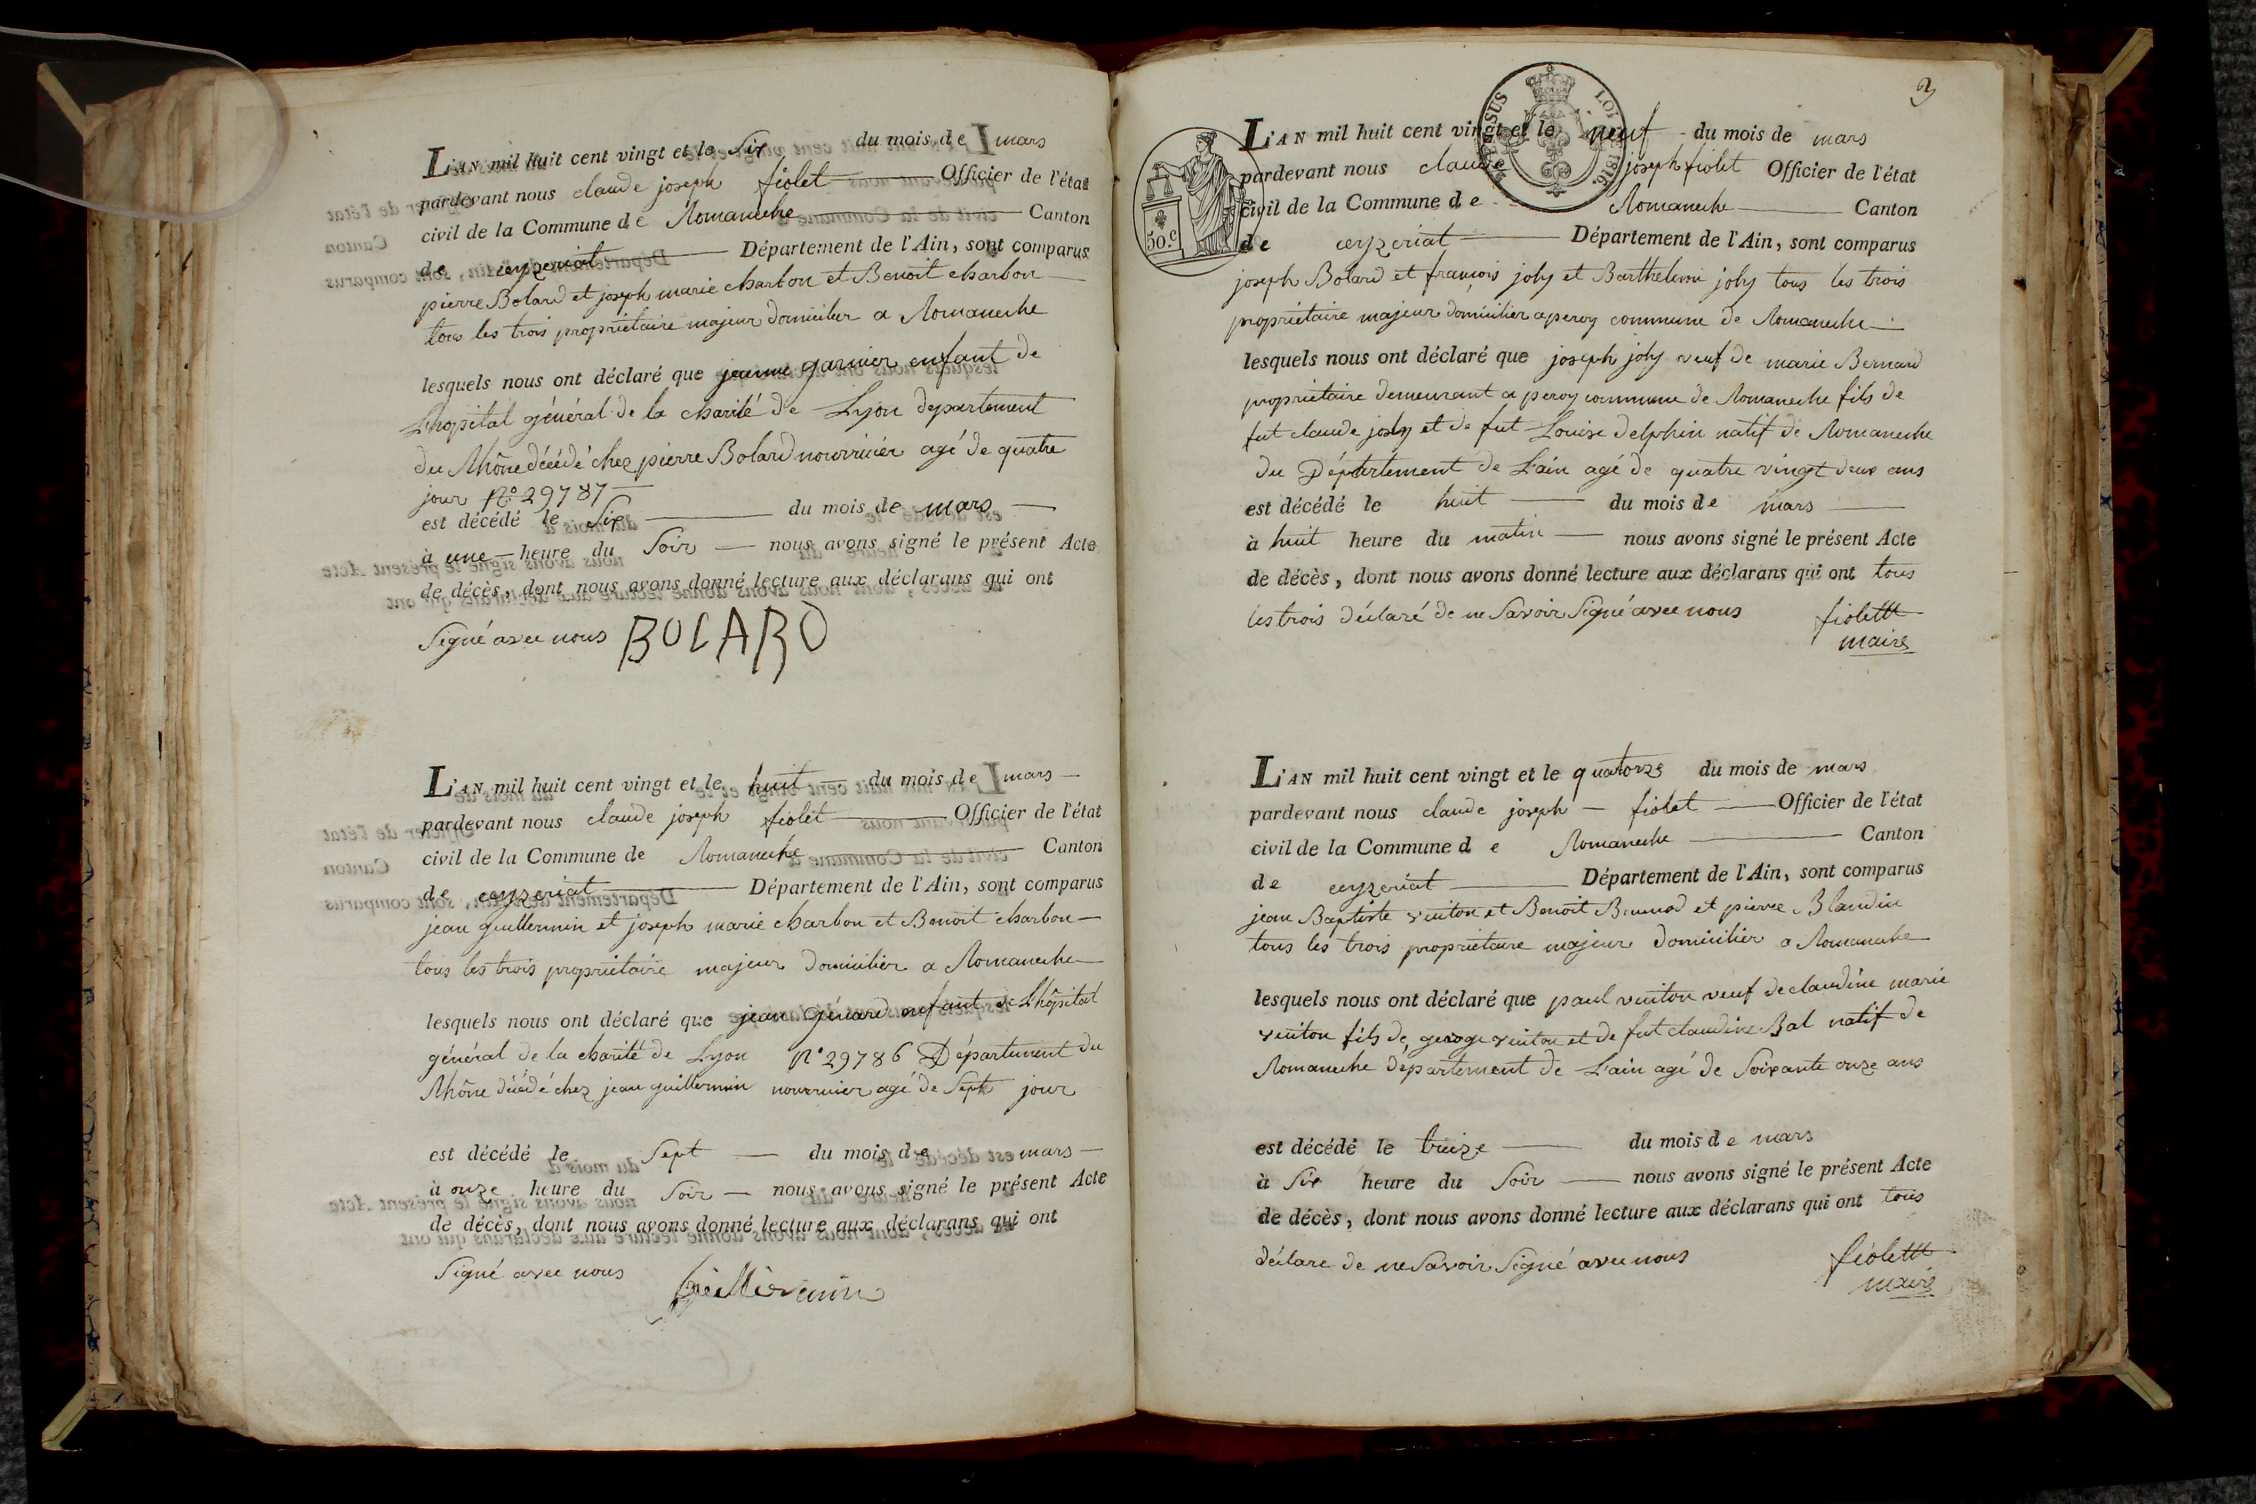 L'AN mil huit cent vingt et le Six du mois de mars
pardevant nous claude joseph fiolet Officier de l'état
civil de la Commune de Romaneche Canton
de ceyzeriat Département de l'Ain, sont comparus
pierre Bolard et joseph marie charbon et Benoit charbon
tous les trois propriétaire majeur domicilier a Romaneche
lesquels nous ont déclaré que jeanne garnier enfant de
L'hopital général de la charité de Lyon departement
du Rhône décédé chez pierre Bolard nourricier agé de quatre
jour N° 29787
est décédé le Six du mois de mars
à une heure du Soir nous avons signé le présent Acte
de décès, dont nous avons donné lecture aux déclarans qui ont
Signé avec nous BOLARD
L'AN mil huit cent vingt et le huit du mois de mars
pardevant nous claude joseph fiolet Officier de l'état
civil de la Commune de Romaneche Canton
de ceyzeriat Département de l'Ain, sont comparus
jean guillermin et joseph marie charbon et Benoit charbon
tous les trois propriétaire majeur domicilier a Romaneche
lesquels nous ont déclaré que jean enfant de L'hôpital
général de la charité de Lyon N° 29786 Département du
Rhône décédé chez jean guillermin nourricier agé de Sept jour
est décédé le Sept du mois de mars
à onze heure du Soir nous avons signé le présent Acte
de décès, dont nous avons donné lecture aux déclarans qui ont
Signé avec nous Guillermin
3
LOI 1816
50.c
L'AN mil huit cent vingt et le neuf du mois de mars
pardevant nous claude joseph fiolet Officier de l'état
civil de la Commune de Romaneche Canton
de ceyzeriat Département de l'Ain, sont comparus
joseph Bolard et françois joly et Barthelemi joly tous les trois
propriétaire majeur domicilier a peroy commune de Romaneche
lesquels nous ont déclaré que joseph joly veuf de marie Bernard
propriétaire demeurant a peroy commune de Romaneche fils de
fut claude joly et de fut Louise Delphin natif de Romaneche
du Département de L'ain agé de quatre vingt deux ans
est décédé le huit du mois de mars
à huit heure du matin nous avons signé le présent Acte
de décès, dont nous avons donné lecture aux déclarans qui ont tous
les trois déclaré de ne Savoir Signé avec nous fiolettt
maire
L'AN mil huit cent vingt et le quatorze du mois de mars
pardevant nous claude joseph fiolet Officier de l'état
civil de la Commune de Romaneche Canton
de ceyzeriat Département de l'Ain, sont comparus
jean Baptiste vuiton et Benoit Brunod et pierre Blandin
tous les trois propriétaire majeur domicilier a Romaneche
lesquels nous ont déclaré que paul vuiton veuf de claudine marie
vuiton fils de george vuiton et de fut claudine Bal natif de
Romaneche département de L'ain agé de Soixante onze ans
est décédé le treize du mois de mars
à Six heure du Soir nous avons signé le présent Acte
de décès, dont nous avons donné lecture aux déclarans qui ont tous
déclare de ne Savoir Signé avec nous fiolettt
maire